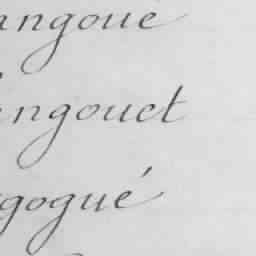 angoue
ngouet
gogué